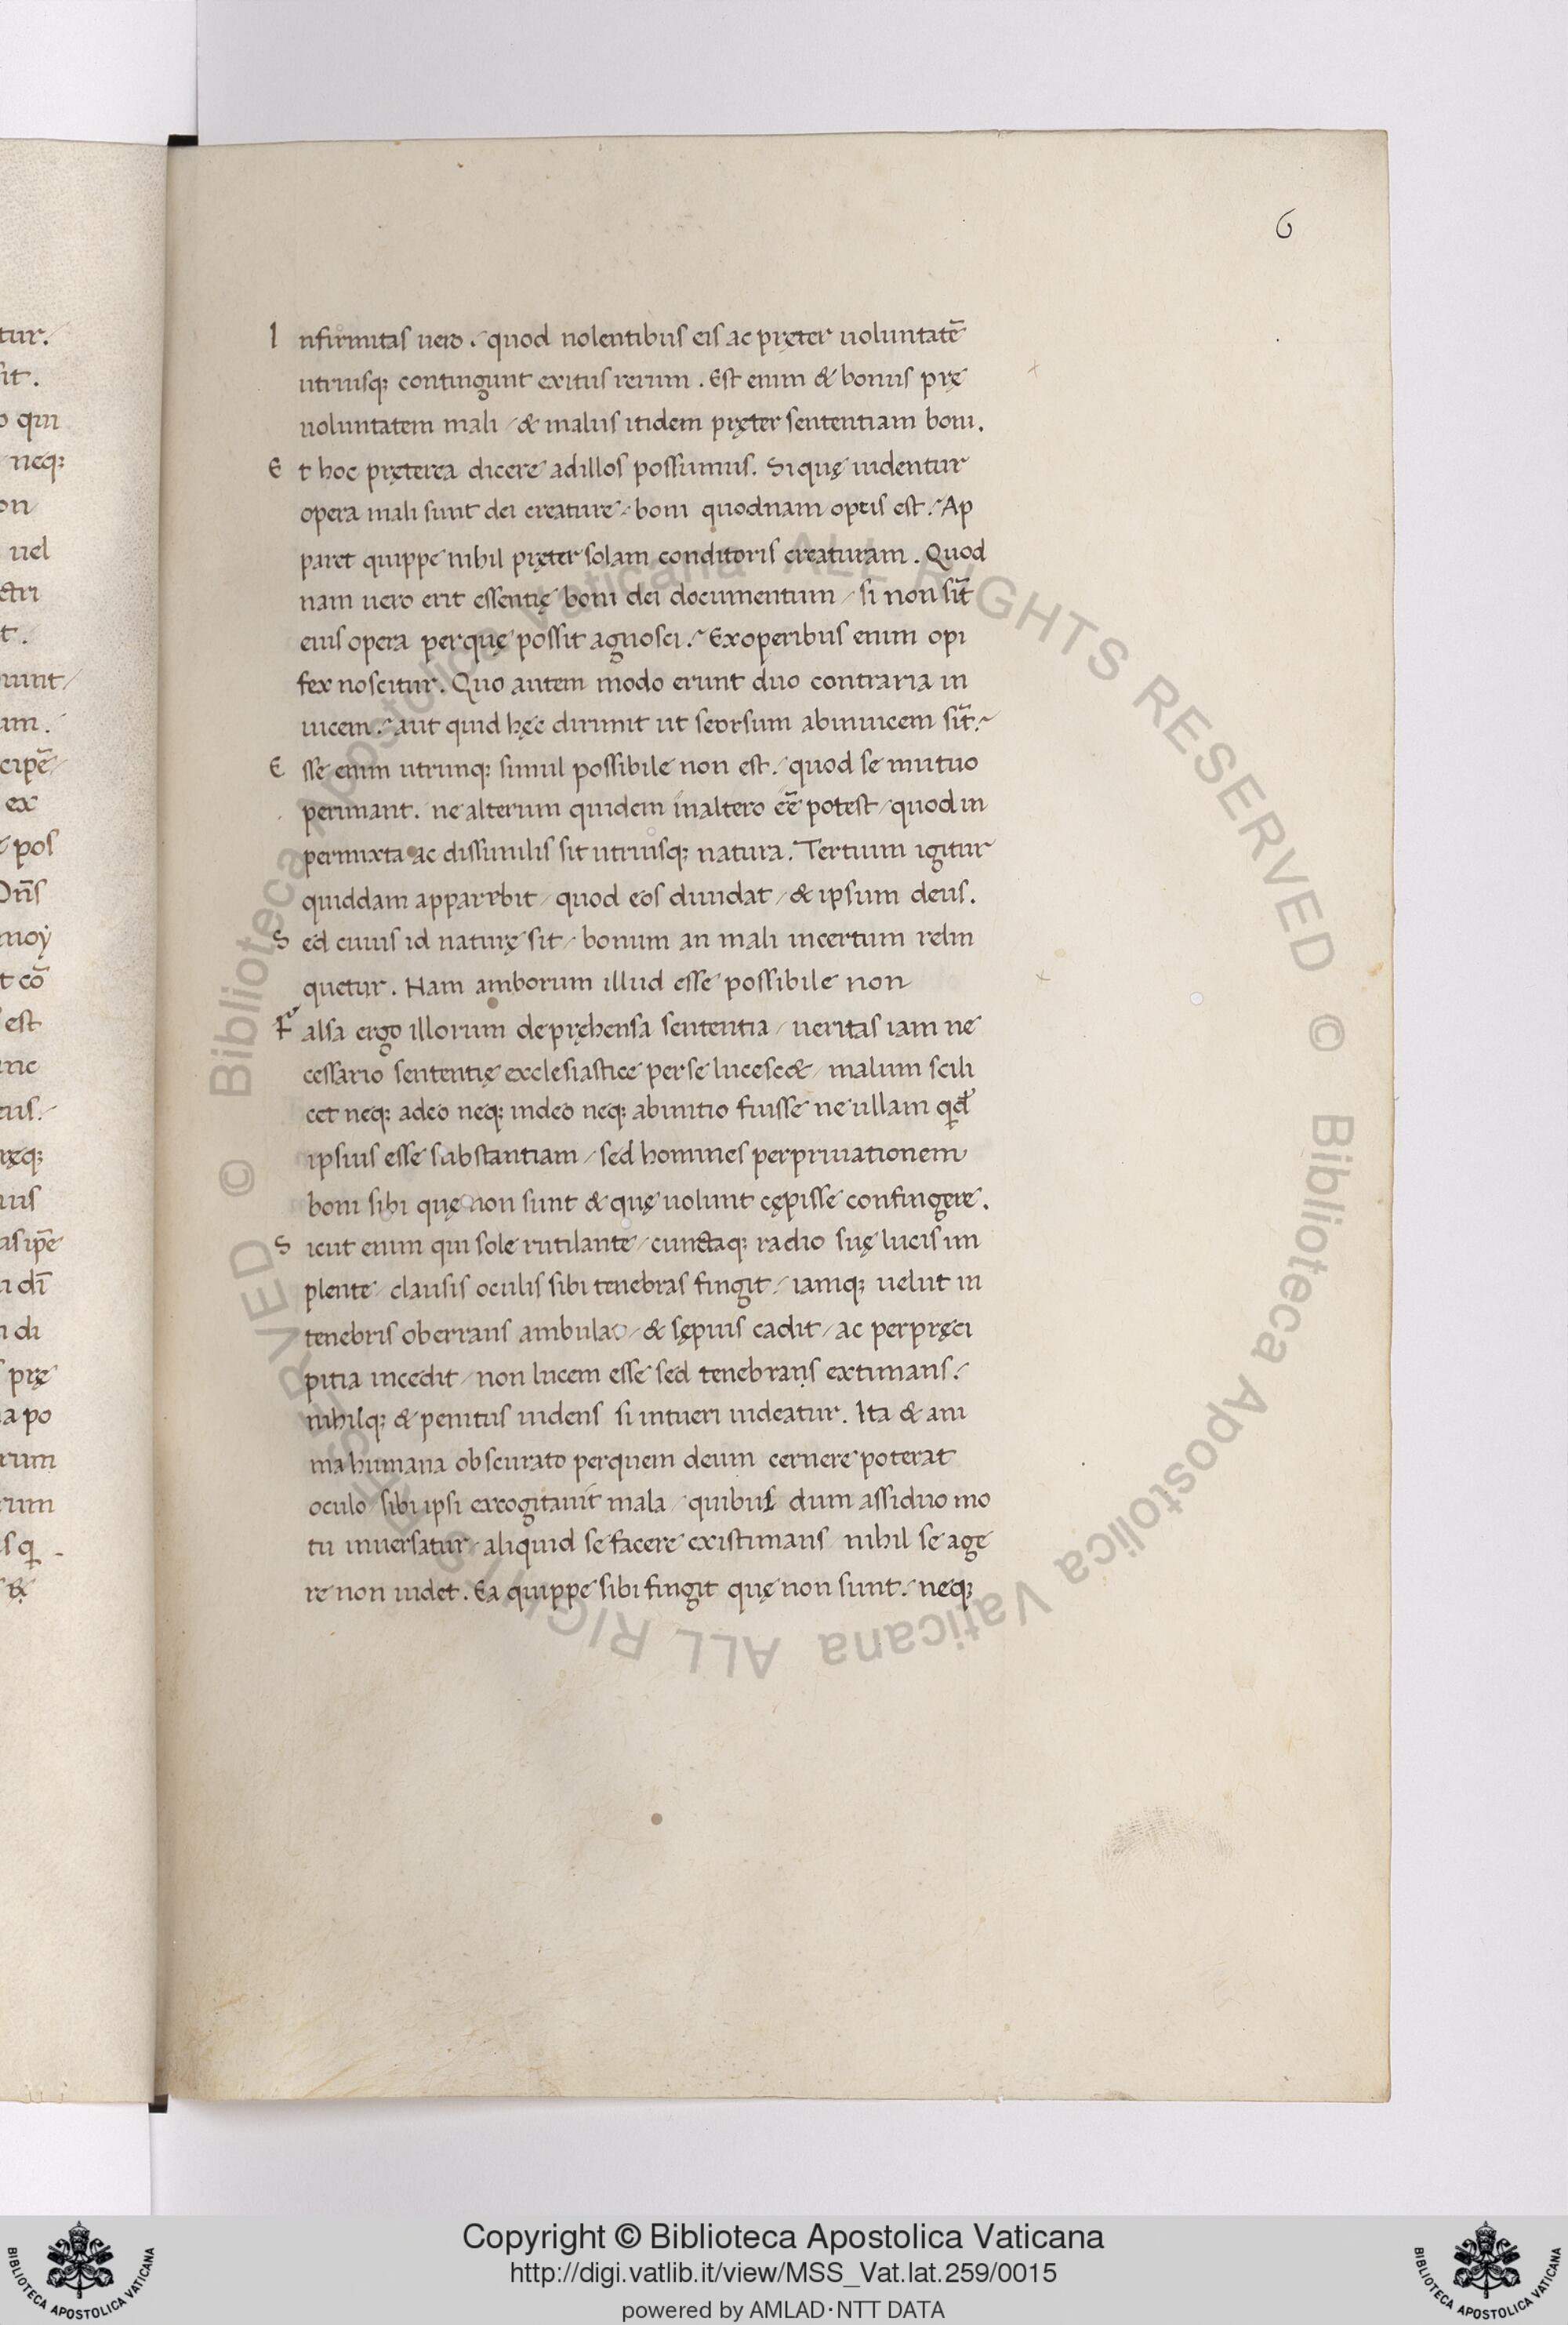 6
Infirmitas uero. quod nolentibus eis ac pręter uoluntatē
utriusq; contingunt exitus rerum. Est enim & bonus prę
uoluntatem mali / & malus itidem pręter sententiam boni.
Et hoc pręterea dicere adillos possumus. Si quę uidentur
opera mali sunt dei creature / boni quodnam opus est. Ap
paret quippe nihil pręter solam conditoris creaturam. Quod
nam uero erit essentię boni dei documentum / si non sīt
eius opera perquę possit agnosci. Exoperibus enim opi
fex noscitur. Quo autem modo erunt duo contraria in
uicem. aut quid hęc dirimit ut seorsum abinuicem sīt.
Esse enim utrunq; simul possibile non est. quod se mutuo
perimant. ne alterum quidem inaltero eē potest / quod in
permixta ac dissimilis sit utriusq; natura. Tertium igitur
quiddam apparebit / quod eos diuidat / & ipsum deus.
Sed cuius id naturę sit / bonum an mali incertum relin
quetur. Nam amborum illud esse possibile non
Falsa ergo illorum deprehensa sententia / ueritas iam ne
cessario sententię exclesiastice perse lucesc& / malum scili
cet neq; adeo neq; indeo neq; abinitio fuisse ne ullam
ipsius esse substantiam / sed homines perpriuationem
boni sibi quę non sunt & quę uolunt cępisse confingere.
Sicut enim qui sole rutilante / cunctaq; radio suę lucis im
plente / clausis oculis sibi tenebras fingit / iamq; uelut in
tenebris oberrans / & sępius cadit / ac perpręci
pitia incedit / non lucem esse sed tenebrans extimans.
nihilq; & penitus uidens si intueri uideatur. Ita & ani
ma humana obscurato perquem deum cernere poterat
oculo sibi ipsi excogitauit mala / quibus dum assiduo mo
tu inuersatur / aliquid se facere existimans nihil se age
re non uidet. Ea quippe sibi fingit quę non sunt. neq;
© Biblioteca Apostolica Vaticana ALL RIGHTS RESERVED © Biblioteca Apostolica Vaticana ALL RIGHTS RESERVED
Copyright © Biblioteca Apostolica Vaticana
http://digi.vatlib.it/view/MSS_Vat.lat.259/0015
powered by AMLAD·NTT DATA
BIBLIOTECA APOSTOLICA VATICANA
BIBLIOTECA APOSTOLICA VATICANA